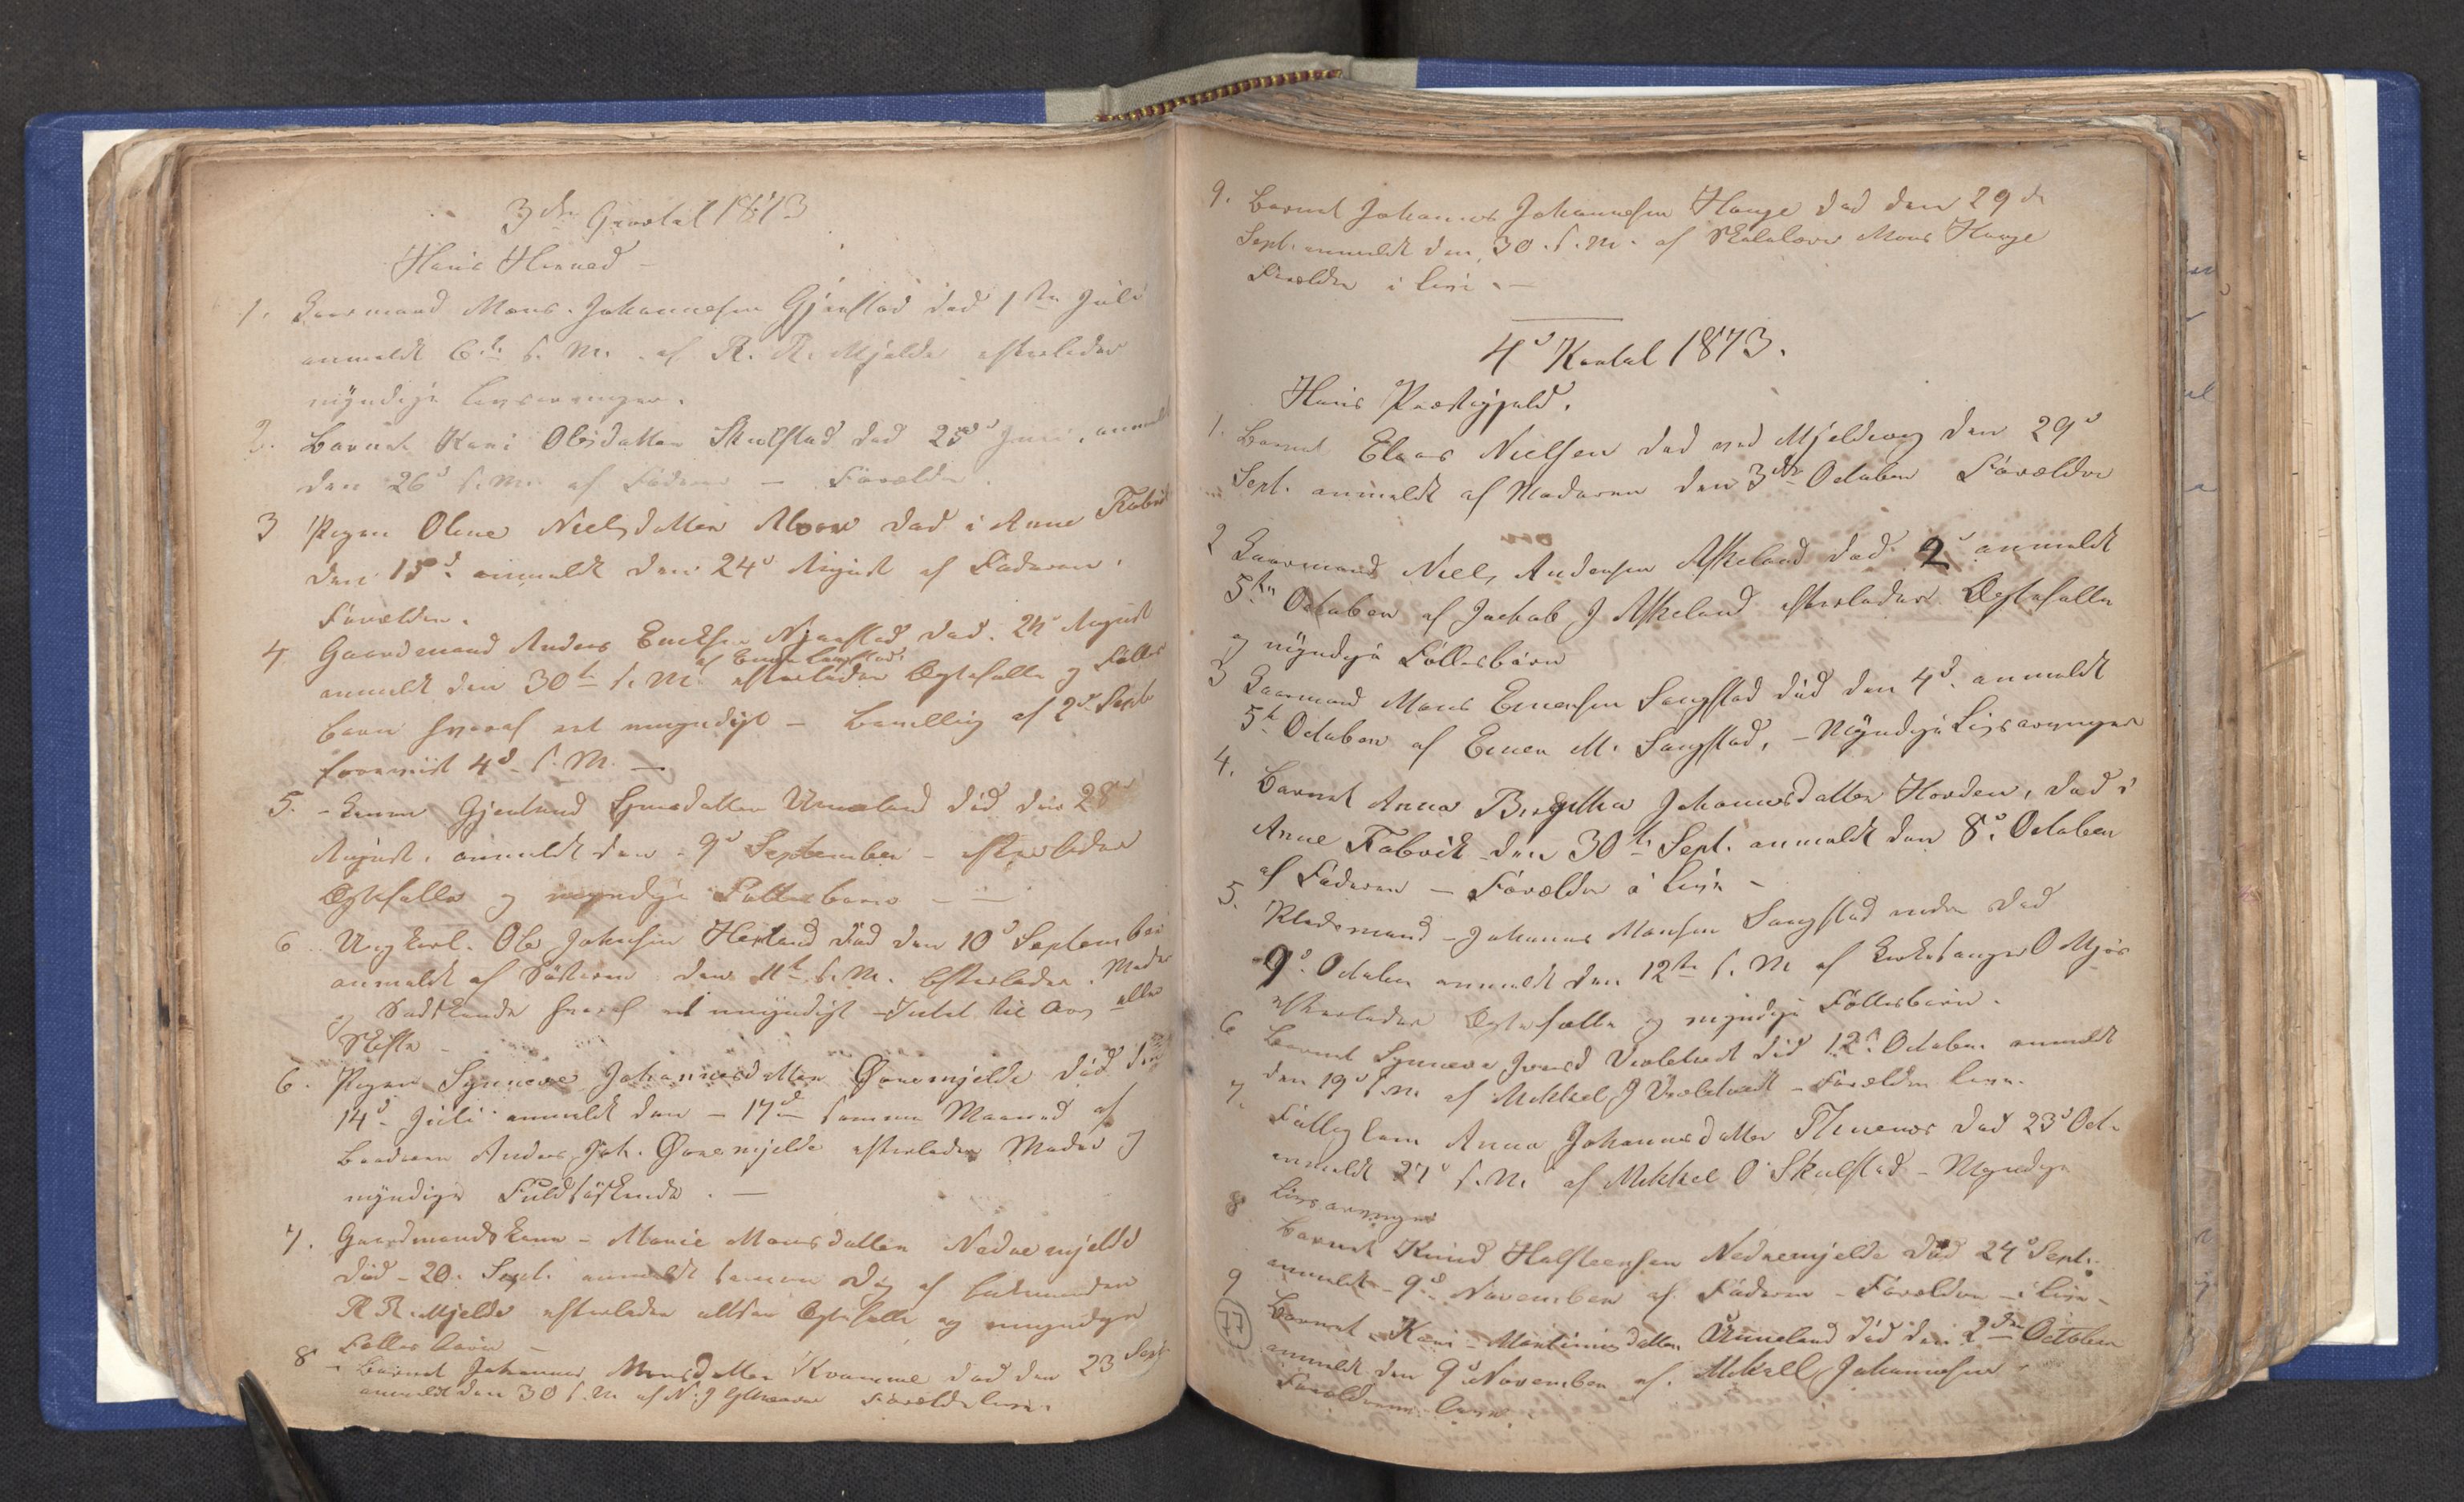 3die Qvartal 1873
Haus Herred -
1. Kaarmand Mons Johannesen Gjerstad död 1ste Juli
anmeldt 6te s. M. af R. R. Mjelde efterlader
myndige Livsarvinger.
2. Barnet Kari Olsdatter Skulstad död 25d Juni, anmeldt
den 26d s. M. af Faderen - Forældre
3 Pigen Oline Nielsdatter död i Arne Fabrik
den 15d anmeldt den 24d August af Faderen.
Forældre.
4 Gaardmand Anders Ericksen död 24 August
af
anmeldt den 30te s. M. efterlader Ægtefælle og Fælles
barn hvoraf et umyndigt - Bevilling af 2d Septb
foreviist 4d s. M. -
5. - Kone Gjertrud Unneland död den 28d
August, anmeldt den 9d September - efterlader
Ægtefælle og myndige Fællesbørn -
6 Ungkarl Ole Johnsen Herland död den 10d September
anmeldt af Søsteren den 11te s. M. Efterlader Moder
og Sødskende hvoraf et umyndigt - Intet til Arv eller
Skifte
6. Pigen Synneve Johannesdatter Øvremjelde död den
14d Juli anmeldt den - 17d samme Maaned af
Broderen Anders Joh. Øvremjelde efterlader Moder og
myndige Fuldsøskende. -
7. Gaardmandskone - Marie Monsdatter Nedremjelde
död - 20. Sept. anmeldt samme Dag af Lensmanden
R R. Mjelde efterlader Ægtefælle og umyndige
Fælles Børn -
8 Barnet Johannes Monsdatter Kvamme död den 23 Sept
anmeldt den 30 s. M. af N. J. Forældre leve.
9. Barnet Johannes Johannesen Hauge död den 29de
Sept. anmeldt den 30. s. M. af Skolelærer Mons Hauge
Forældre i Live. -
4d Kvartal 1873.
Haus Præstegjeld.
1. Barnet Elias Nielsen död ved Mjeldevig den 29d
Sept. anmeldt af Moderen den 3die October Forældre
den
2 Kaarmand Niels Andersen Askeland död 2d anmeldt
5te October af Jackob J Askeland efterlader Ægtefælle
og myndige Fællesbørn
3 Kaarmand Mons Ennersen Sangstad död den 4d anmeldt
5te October af Enner M. Sangstad, - Myndige Livsarvinger
4. Barnet Anna Birgitha Johannesdatter Horden, död i
Arne Fabrik den 30te Sept. anmeldt den 8d October
af Faderen - Forældre i Live -
5. - Johannes Monsen Sangstad död
9d October anmeldt den 12te s. M af Kirkesanger O Mjøs
efterlader Ægtefælle og myndige Fællesbørn.
6 Barnet Synneve död 12d October anmeldt
den 19d s. M. af Mikkel J - Forældre leve.
7. Fattiglem Anna Johannesdatter död 23d Oct.
anmeldt 27d s. M. af Mikkel O Skulstad - Myndige
Livsarvinger
8 Barnet Knud Halsteensen Nedremjelde död 24d Sept.
anmeldt 9d November af Faderen - Forældre i Live -
9 Barnet Kari Martinusdatter Unneland död den 2den October
77
anmeldt den 9d November af Mikkell Johannesen
Forældrene leve.